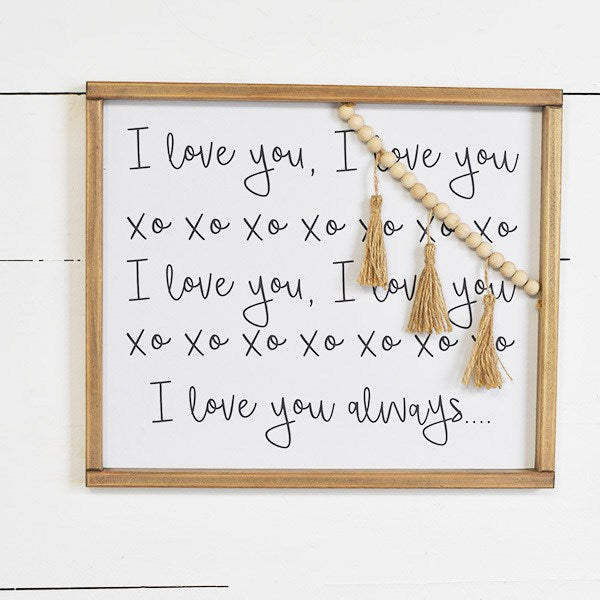 I love you, I love you
xo xo xo xo xo xo xo
I love you, I love you
xo xo xo xo xo xo xo
I love you always....